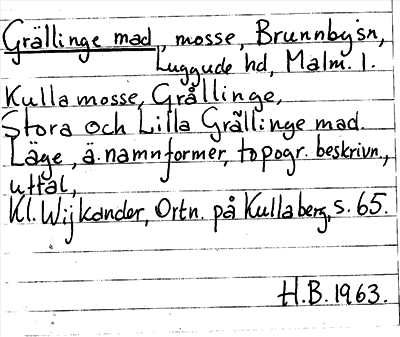 Grällinge mad, mosse, Brunnby sn,
Luggude hd, Malm. l.
Kulla mosse, Grållinge,
Stora och Lilla Grällinge mad.
Läge, ä. namnformer, topogr. beskrivn.,
uttal,
Kl. Wijkander, Ortn. på Kullaberg, s. 65.
H.B. 1963.